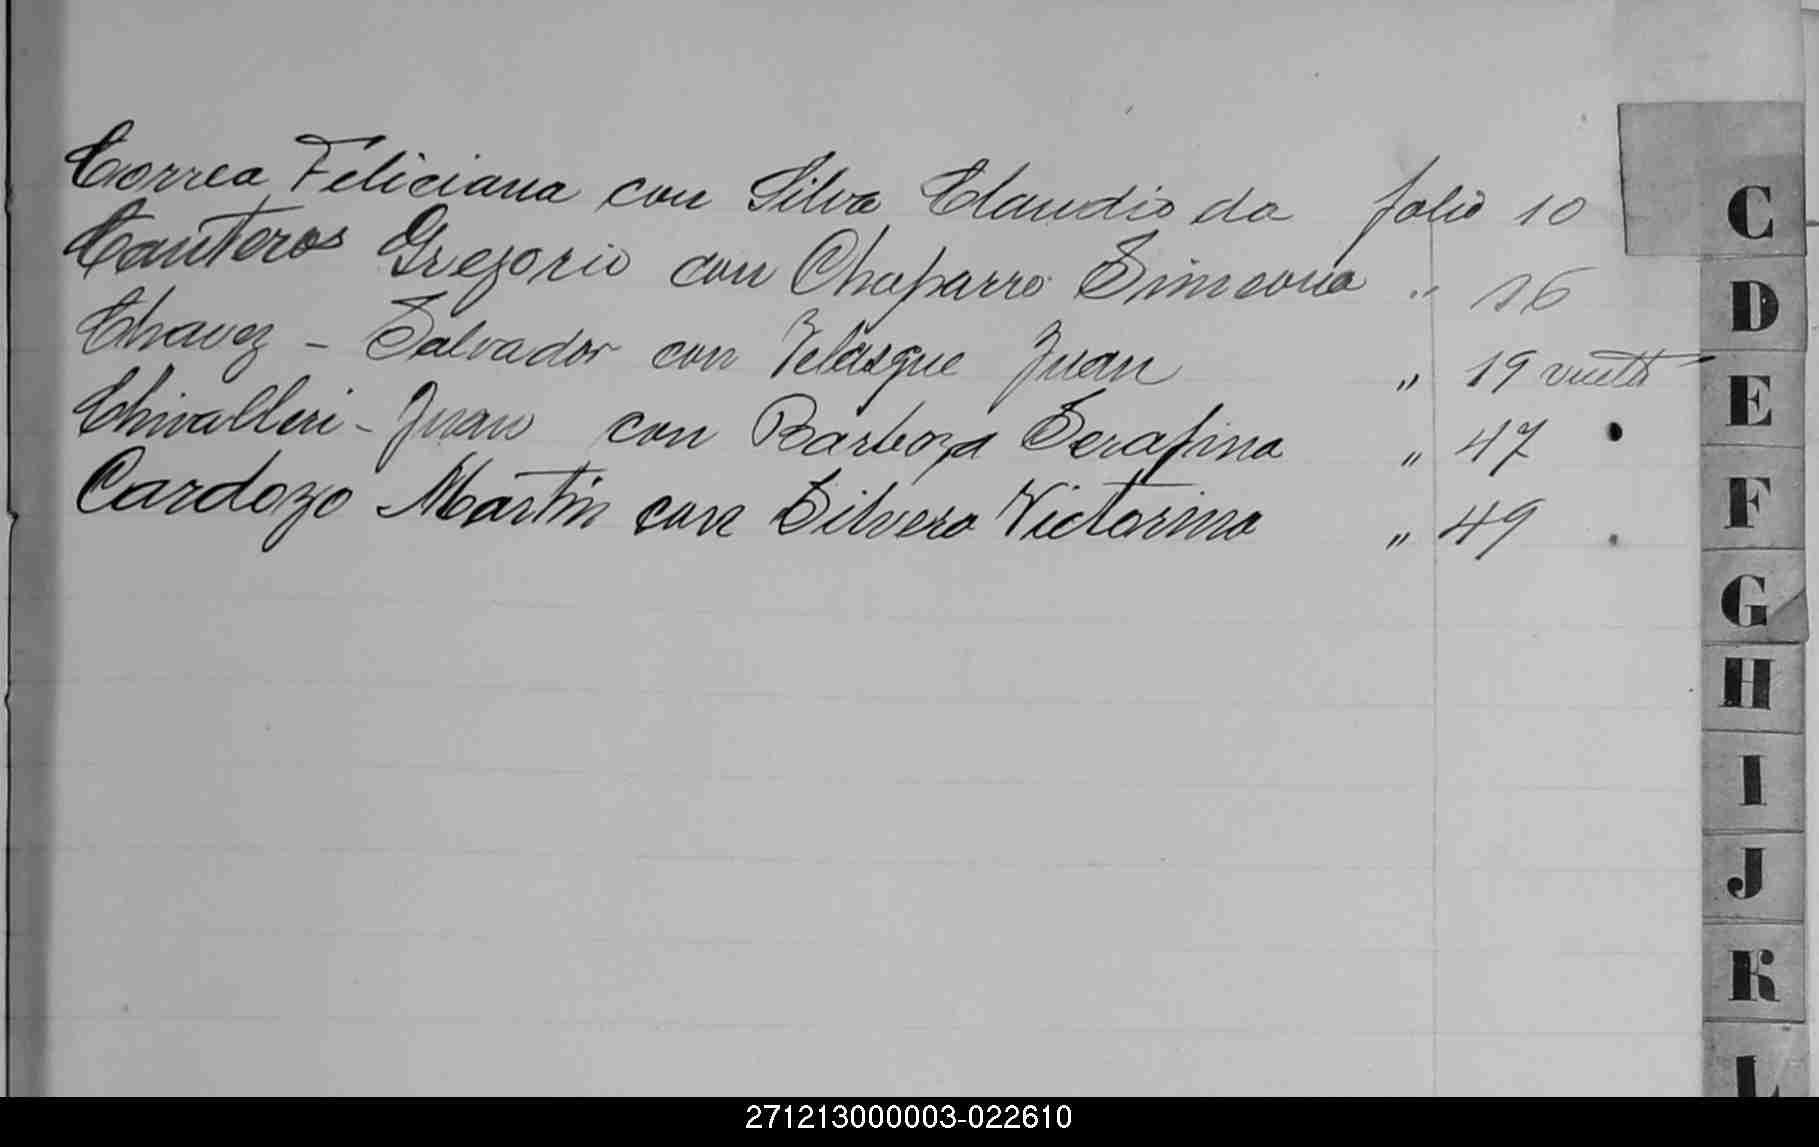 Correa Feliciana con Silva Claudio da folio 10
Canteros Gregorio con Chaparro Simeona " 16
Chavez - Salvador con Velasque Juan " 19 vuelta
Chivalleri - Juan con Barboza Serafina " 47
Cardozo Martin con Silvero Victorina " 49
C
D
E
F
G
H
I
J
K
L
271213000003-022610